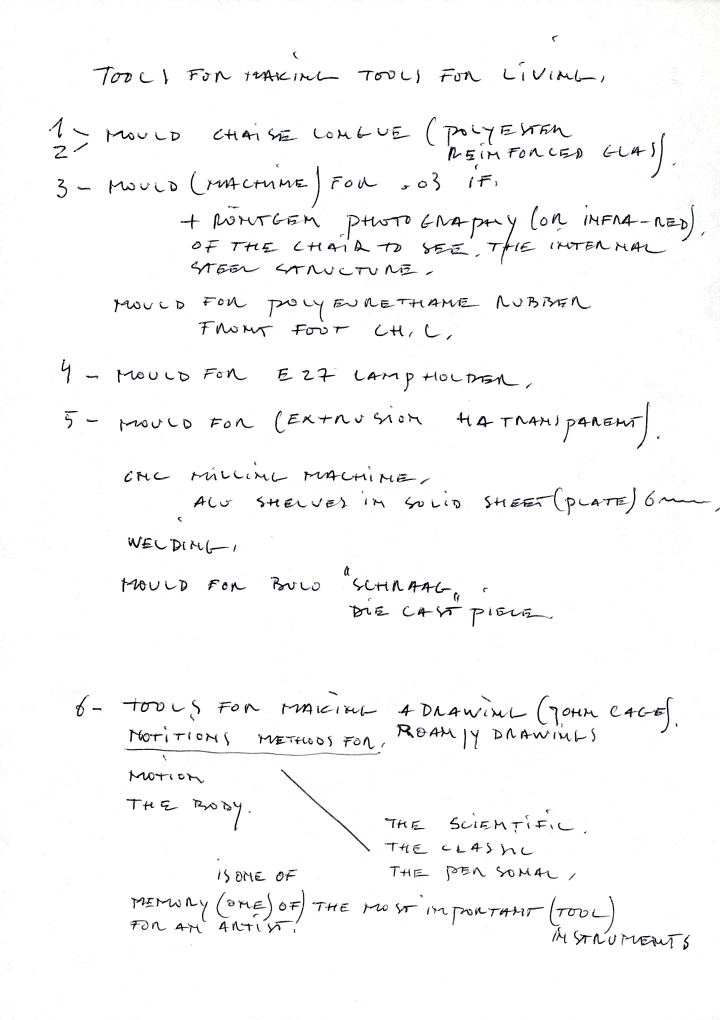 TOOLS FOR MAKING TOOLS FOR LIVING.
1 - MOULD CHAISE LONGUE (POLYESTER
2 - REINFORCED GLAS).
3 - MOULD (MACHINE) FOR .03 IF.
+ RÖNTGEN PHOTOGRAPHY (OR INFRA-RED).
OF THE CHAIR TO SEE THE INTERNAL
STEEL STRUCTURE.
MOULD FOR POLYEURETHANE RUBBER
FRONT FOOT CH. L.
4 - MOULD FOR E27 LAMPHOLDER.
5 - MOULD FOR (EXTRUSION TRANSPARENT).
CNC MILLING MACHINE.
ALU SHELVES IN SOLID SHEET (PLATE) 6mm.
WELDING.
MOULD FOR BULO "SCHRAAG"
DIE CAST PIECE.
6 - TOOLS FOR MAKING A DRAWING (JOHN CAGE).
NOTITIONS METHODS FOR. DRAWINGS
MOTION
THE BODY.
THE SCIENTIFIC.
THE CLASSIC
THE PERSONAL.
IS ONE OF
MEMORY (ONE) OF) THE MOST IMPORTANT (TOOL)
FOR AN ARTIST. INSTRUMENTS